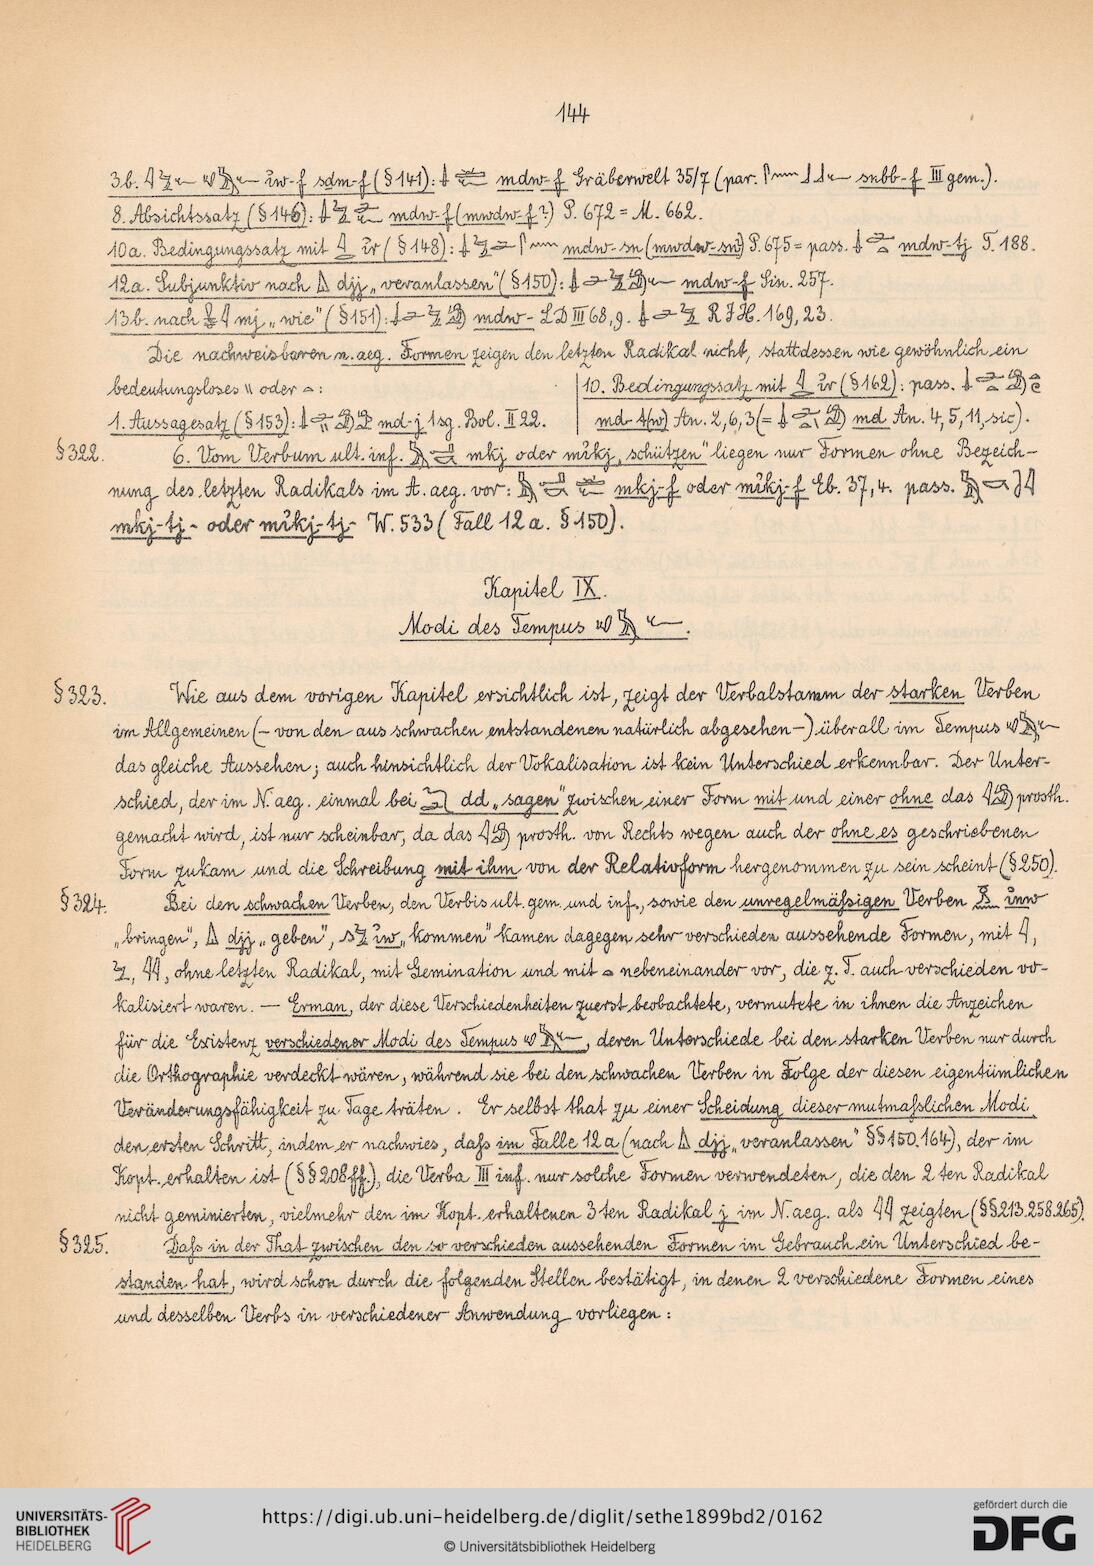 144
3b. iw-f sdm-f (§ 141): mdw-f Gräberwelt 35/7 (par. snbb-f III gem.).
8. Absichtssatz (§ 146): mdw-f (mwdw-f?) P. 672 = M. 662.
10a. Bedingungssatz mit ir (§ 148): mdw-sn (mwdw-sn?) P. 675 = pass. mdw-tj T. 188.
12a. Subjunktiv nach djj „veranlassen" (§ 150): mdw-f Sin. 257.
13b. nach mj „wie" (§ 151): mdw- LD III 68,9. RJH. 169, 23.
Die nachweisbaren n. aeg. Formen zeigen den letzten Radikal nicht, stattdessen wie gewöhnlich ein
bedeutungsloses \\ oder :
1. Aussagesatz (§ 153): md-j 1 sg. Bol. II 22.
10. Bedingungssatz mit ir (§ 162): pass.
md-t(w) An. 2,6,3 (= md An. 4,5,11, sic).
§ 322. 6. Vom Verbum ult. inf. mkj oder mikj „schützen" liegen nur Formen ohne Bezeich-
nung des letzten Radikals im A. aeg. vor: mkj-f oder mikj-f Eb. 37,4. pass.
mkj-tj- oder mikj-tj- W. 533 (Fall 12a. § 150).
Kapitel IX.
Modi des Tempus .
§ 323. Wie aus dem vorigen Kapitel ersichtlich ist, zeigt der Verbalstamm der starken Verben
im Allgemeinen (– von den aus schwachen entstandenen natürlich abgesehen –) überall im Tempus
das gleiche Aussehen; auch hinsichtlich der Vokalisation ist kein Unterschied erkennbar. Der Unter-
schied, der im N. aeg. einmal bei dd „sagen" zwischen einer Form mit und einer ohne das prosth.
gemacht wird, ist nur scheinbar, da das prosth. von Rechts wegen auch der ohne es geschriebenen
Form zukam und die Schreibung mit ihm von der Relativform hergenommen zu sein scheint (§ 250).
§ 324. Bei den schwachen Verben, den Verbis ult. gem. und inf., sowie den unregelmäßigen Verben inw
„bringen", djj „geben", iw „kommen" kamen dagegen sehr verschieden aussehende Formen, mit ,
, , ohne letzten Radikal, mit Gemination und mit nebeneinander vor, die z. T. auch verschieden vo-
kalisiert waren. — Erman, der diese Verschiedenheiten zuerst beobachtete, vermutete in ihnen die Anzeichen
für die Existenz verschiedener Modi des Tempus , deren Unterschiede bei den starken Verben nur durch
die Orthographie verdeckt wären, während sie bei den schwachen Verben in Folge der diesen eigentümlichen
Veränderungsfähigkeit zu Tage träten. Er selbst that zu einer Scheidung dieser mutmaßlichen Modi
den ersten Schritt, indem er nachwies, daß im Falle 12a (nach djj „veranlassen" §§ 150. 164), der im
Kopt. erhalten ist (§§ 208 ff.), die Verba III inf. nur solche Formen verwendeten, die den 2 ten Radikal
nicht geminierten, vielmehr den im Kopt. erhaltenen 3 ten Radikal j im N. aeg. als zeigten (§§ 213. 258. 265).
§ 325. Daß in der That zwischen den so verschieden aussehenden Formen im Gebrauch ein Unterschied be-
standen hat, wird schon durch die folgenden Stellen bestätigt, in denen 2 verschiedene Formen eines
und desselben Verbs in verschiedener Anwendung vorliegen:
UNIVERSITÄTS-
BIBLIOTHEK
HEIDELBERG
https://digi.ub.uni-heidelberg.de/diglit/sethe1899bd2/0162
© Universitätsbibliothek Heidelberg
gefördert durch die
DFG